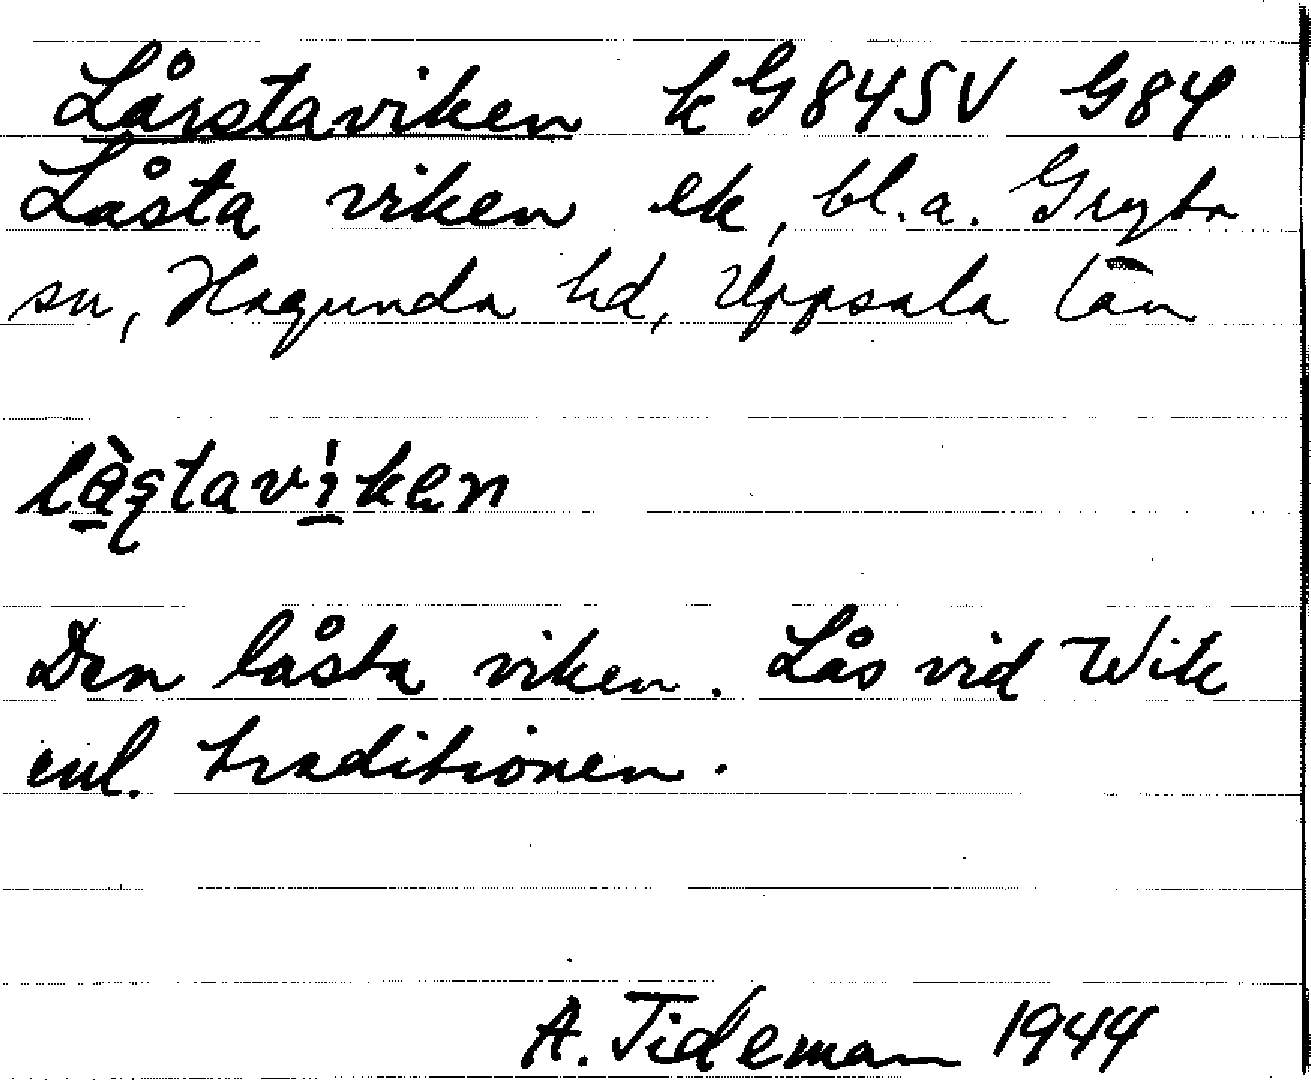 Lårstaviken k G84SV G84
Låsta viken ek, bl.a. Gryta
sn, Hagunda hd, Uppsala län
làstavìken
Den låsta viken. Lås vid Wik
enl. traditionen.
A. Tideman 1944